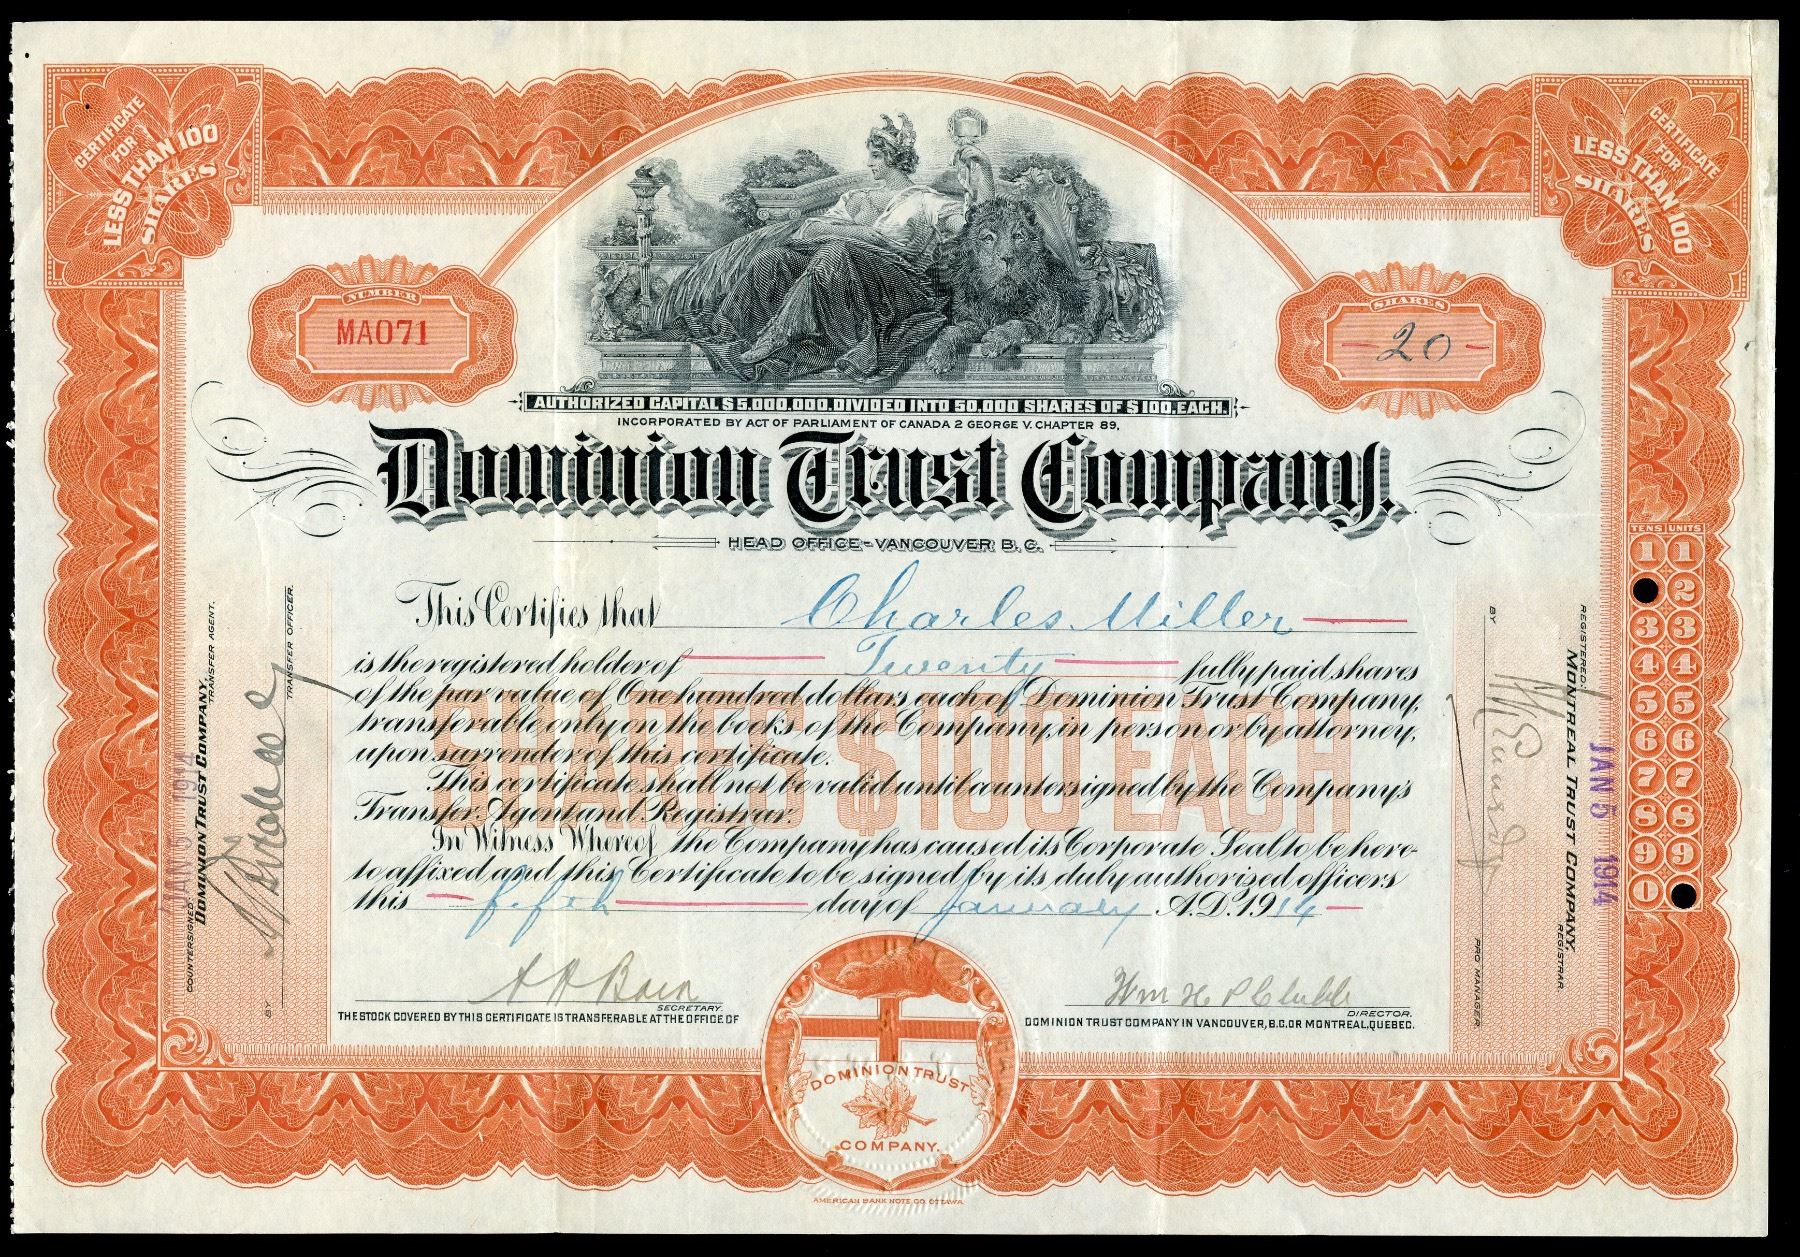 CERTIFICATE
FOR
LESS THAN 100
SHARES
CERTIFICATE
FOR
LESS THAN 100
SHARES
NUMBER
MA071
SHARES
20
AUTHORIZED CAPITAL $5,000,000, DIVIDED INTO 50,000 SHARES OF $100, EACH.
INCORPORATED BY ACT OF PARLIAMENT OF CANADA 2 GEORGE V. CHAPTER 89,
Dominion Trust Company.
HEAD OFFICE - VANCOUVER B. C.
This Certifies that Charles Miller
is the registered holder of Twenty fully paid shares
of the par value of One hundred dollars each of Dominion Trust Company,
transferable only on the books of the Company, in person or by attorney,
upon surrender of this certificate.
This certificate shall not be valid until countersigned by the Company's
Transfer Agent and Registrar.
In Witness Whereof the Company has caused its Corporate Seal to be here-
to affixed and this Certificate to be signed by its duly authorized officers
this fifth day of January A.D. 1914
SHARES $100 EACH
SECRETARY.
Wm H P Clubb
DIRECTOR.
THE STOCK COVERED BY THIS CERTIFICATE IS TRANSFERABLE AT THE OFFICE OF
DOMINION TRUST COMPANY IN VANCOUVER, B.C. OR MONTREAL, QUEBEC.
DOMINION TRUST
COMPANY.
AMERICAN BANK NOTE CO. OTTAWA.
JAN 5 1914
COUNTERSIGNED:
DOMINION TRUST COMPANY,
TRANSFER AGENT.
BY
TRANSFER OFFICER.
REGISTERED:
MONTREAL TRUST COMPANY,
REGISTRAR
JAN 5 1914
BY
PRO MANAGER
TENS UNITS
1 1
2
3 3
4 4
5 5
6 6
7 7
8 8
9 9
0